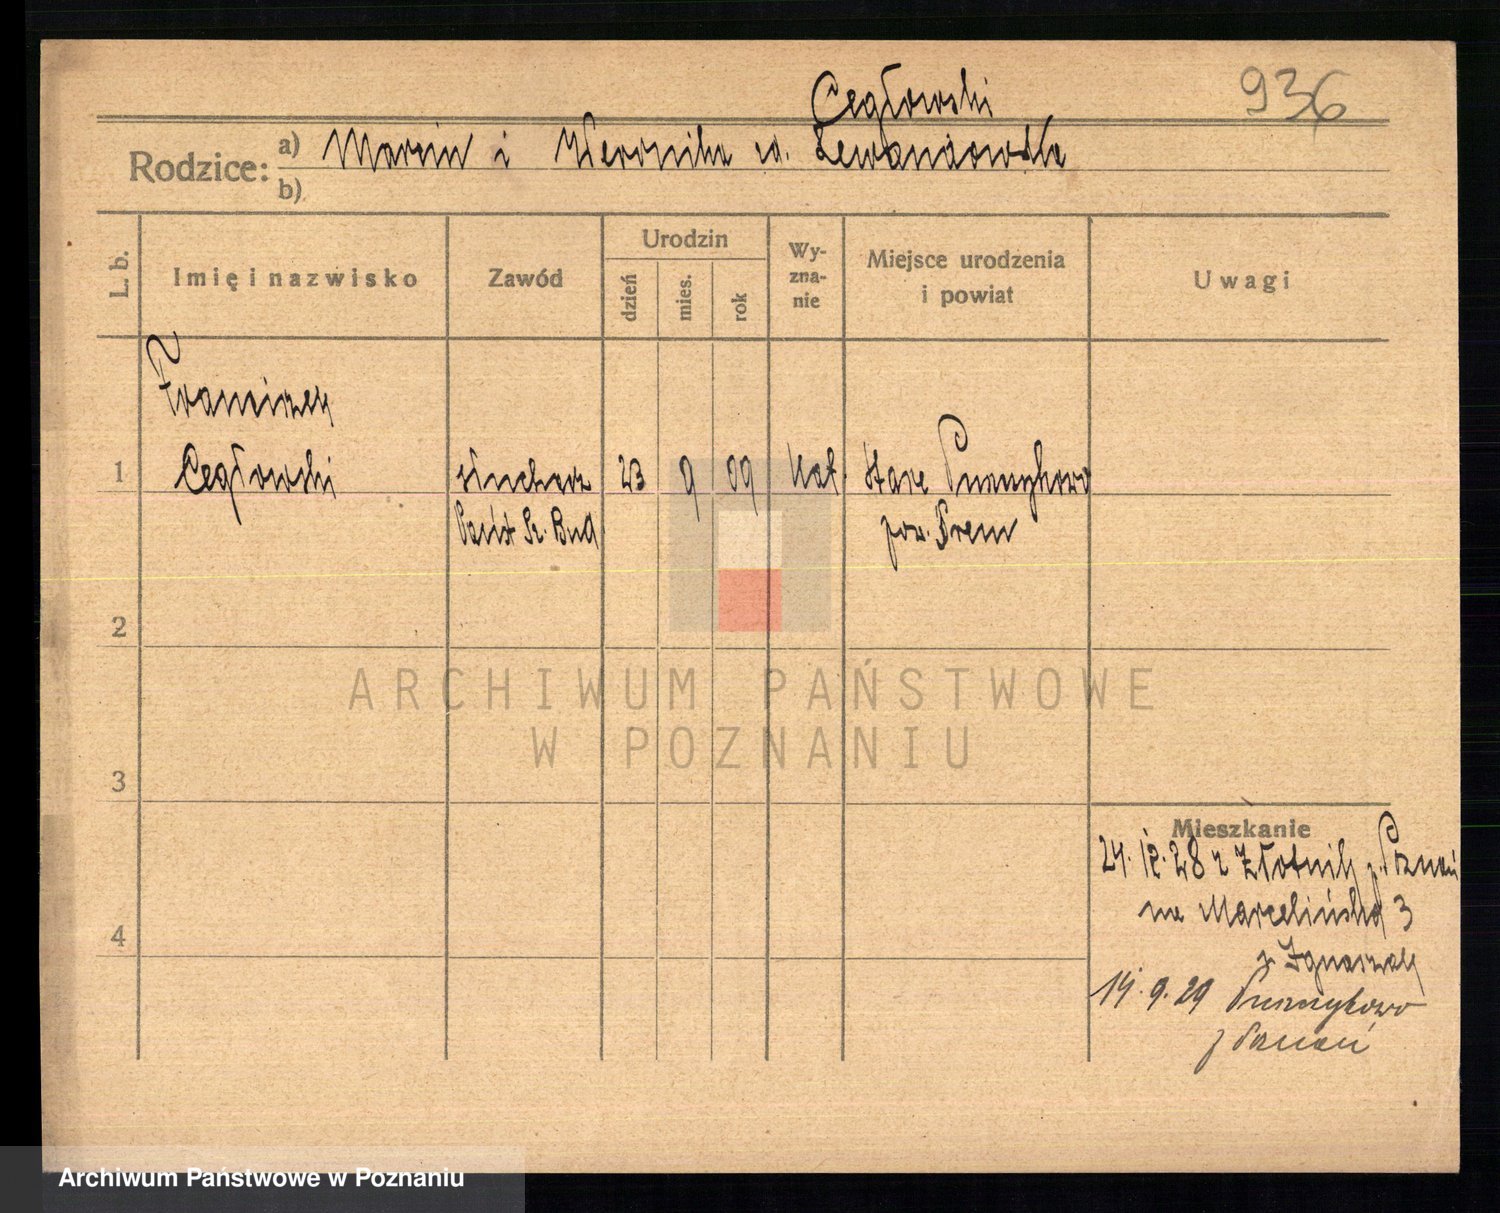 936
Cegłowski
Rodzice: a) Marcin i Weronika ur. Lewandowska
b)
L. b.
Imię i nazwisko
Zawód
Urodzin
dzień
mies.
rok
Wy-
zna-
nie
Miejsce urodzenia
i powiat
Uwagi
Franciszek
1 Cegłowski słuchacz 23 9 09 kat. Stare
Państ Sz. Bud pow. Śrem
2
3
4
Mieszkanie
24.12.28 z Złotnik p. Poznań
na Marcelińska 3
z Ignaszak
14.9.29
p Poznań
ARCHIWUM PAŃSTWOWE
W POZNANIU
Archiwum Państwowe w Poznaniu